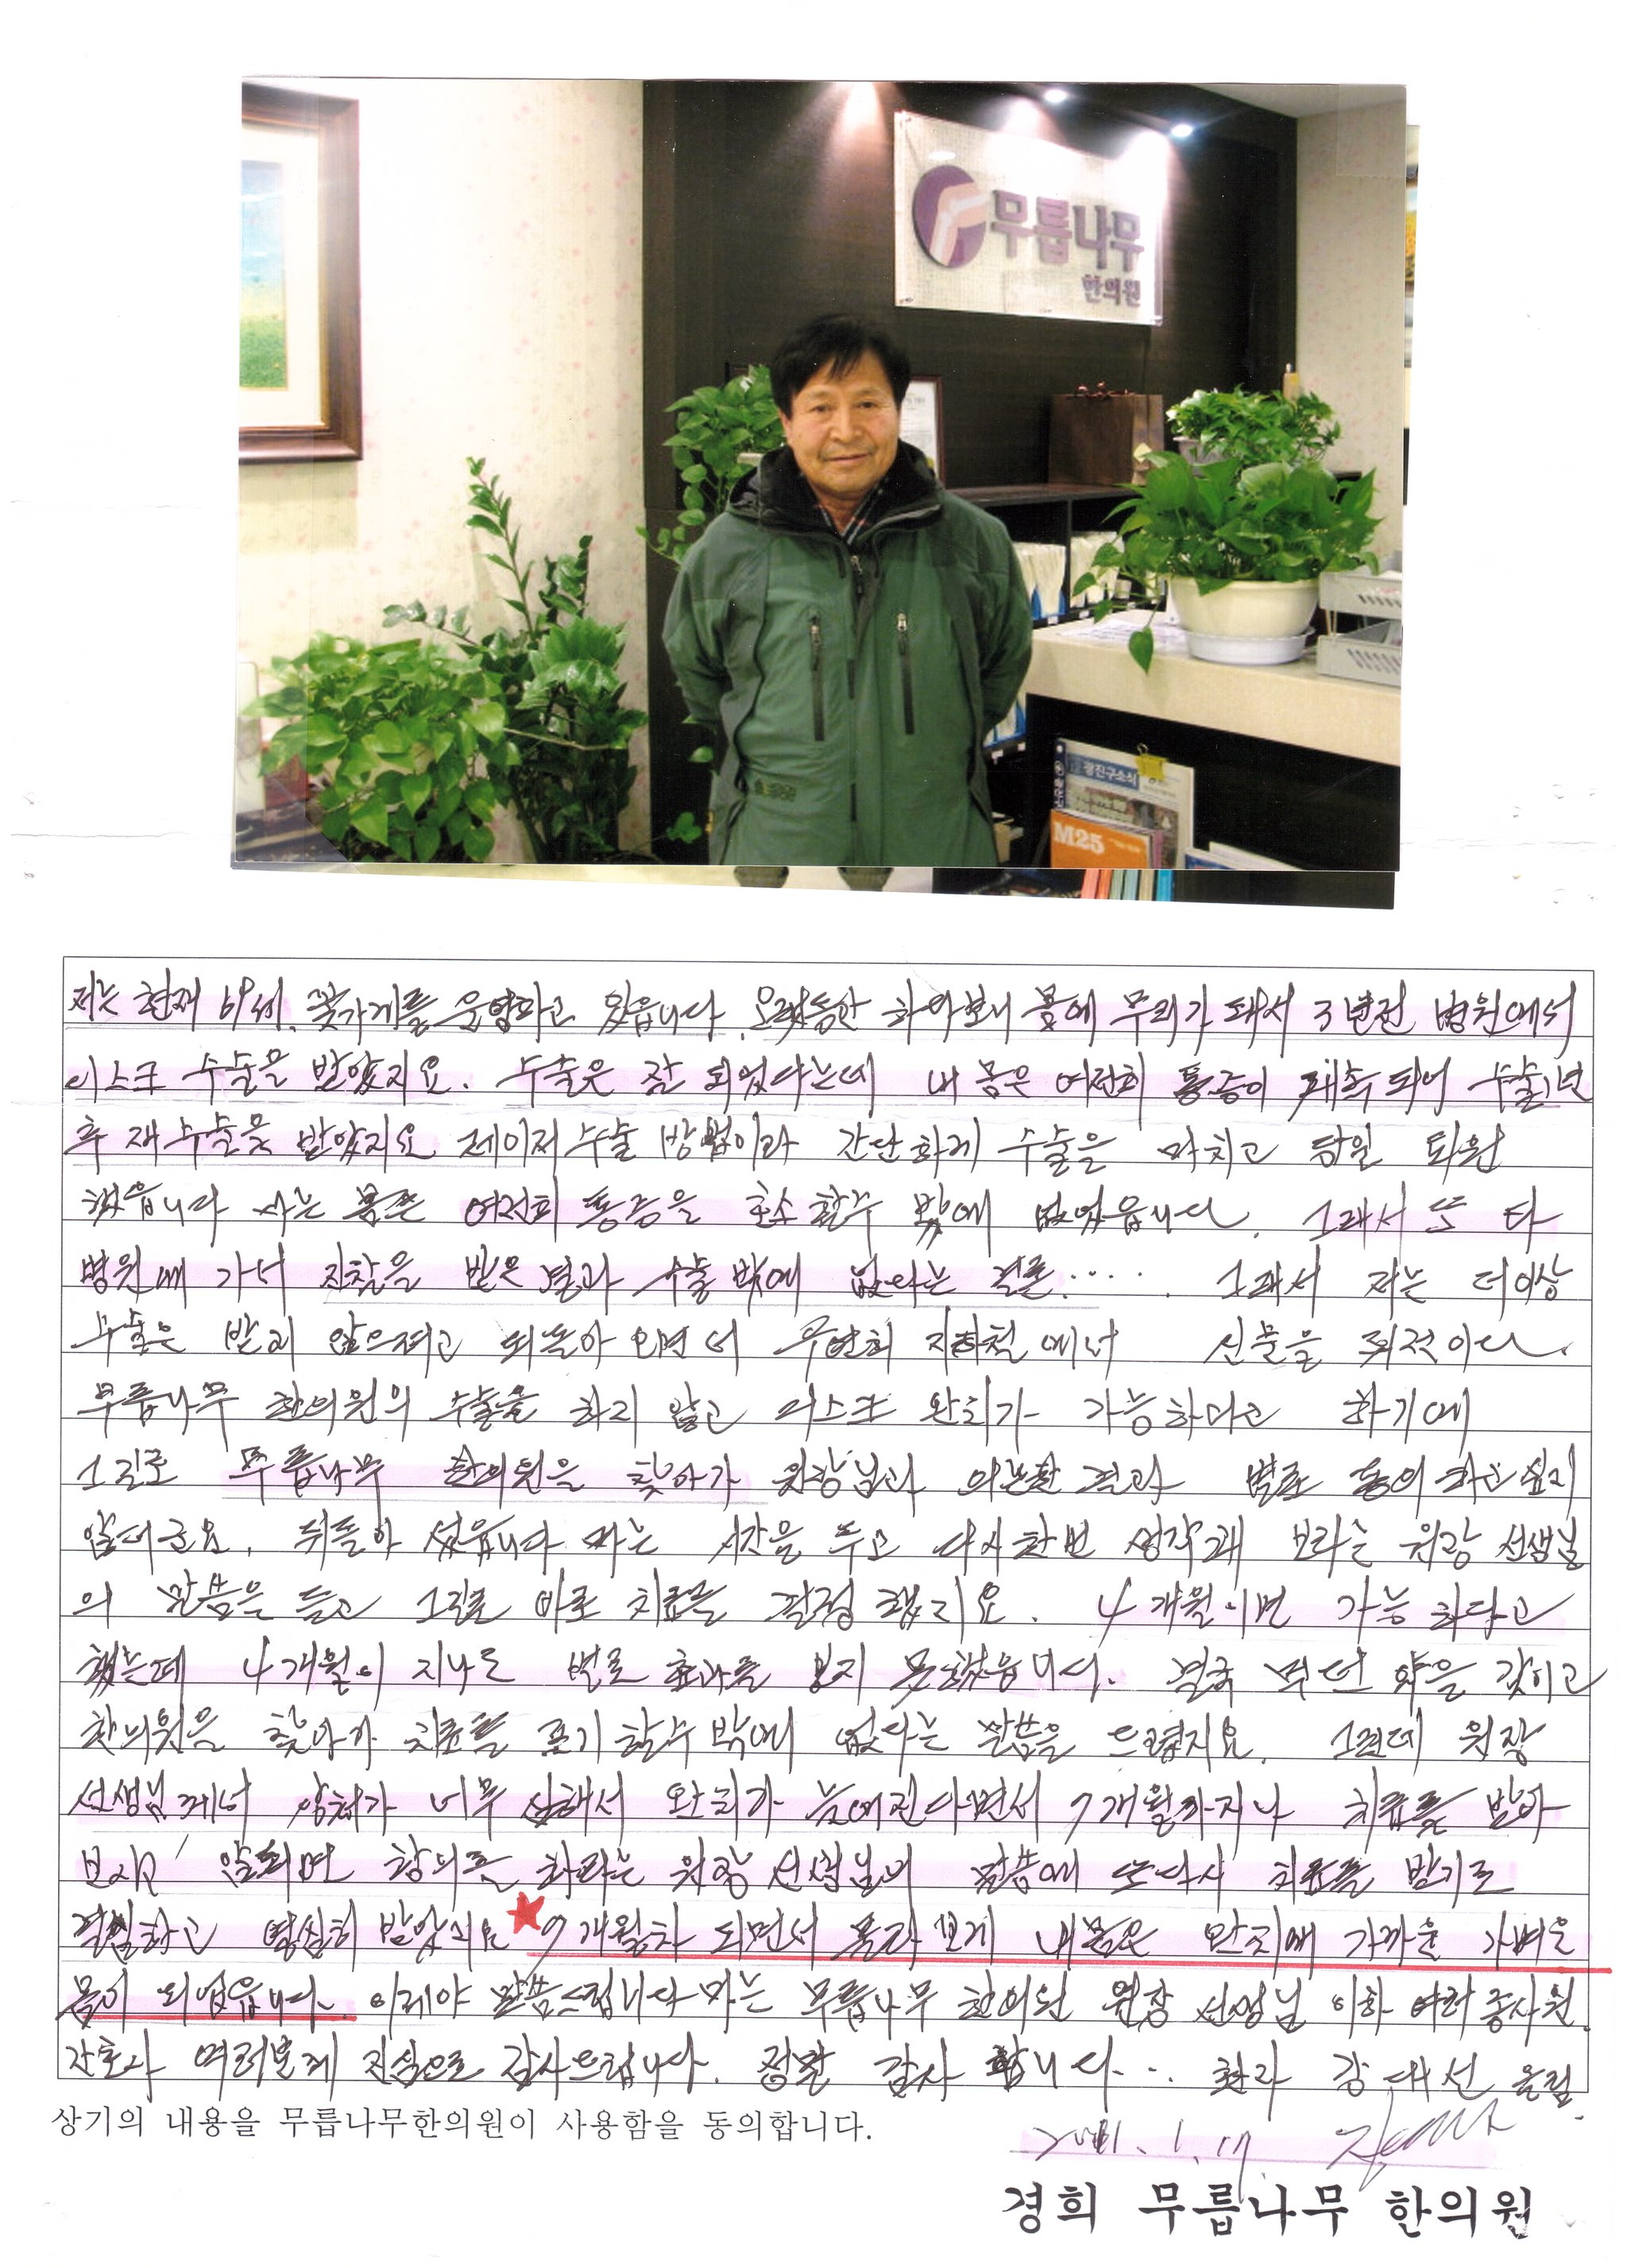 무릎나무
한의원
광진구소식
M25
저는 현재 69세. 꽃가게를 운영하고 있읍니다. 오래동안 하아보니 몸에 무리가 돼서 3년전 병원에서
디스크 수술을 받았지요. 수술은 잘 되었다는데 내 몸은 여전히 통증이 계속되어 수술1년
후 재수술을 받았지요 레이저수술 방법이라 간단하게 수술을 마치고 당일 퇴원
했읍니다 마는 몸은 여전히 통증을 호소할수 밖에 없었읍니다. 그래서 또 타
병원에 가서 진찰을 받은 결과 수술 밖에 없다는 결론..... 그래서 저는 더이상
수술은 받지 않으려고 되돌아 오면서 우연히 지하철에서 신문을 뒤적이다.
무릎나무 한의원의 수술을 하지 않고 디스크 완치가 가능하다고 하기에
그길로 무릎나무 한의원을 찾아가 원장님과 의논한 결과 별로 동의하고 싶지
않더군요. 뒤돌아 섰읍니다 마는 시간을 두고 다시한번 생각해 보라는 원장 선생님
의 말씀을 듣고 그길로 바로 치료를 결정했지요. 4개월이면 가능하다고
했는데 4개월이 지나도 별로 효과를 보지 못했읍니다. 결국 먹던 약을 갖이고
한의원을 찾아가 치료를 포기할수밖에 없다는 말씀을 드렸지요. 그런데 원장
선생님께서 상처가 너무 심해서 완치가 늦어진다면서 7개월까지나 치료를 받아
보시고 안되면 항의를 하라는 원장 선생님의 말씀에 또다시 치료를 받기로
결심하고 열심히 받았지요 7개월차 되면서 몰라보게 내몸은 완치에 가까운 가벼운
몸이 되었읍니다. 이제야 말씀드립니다마는 무릎나무 한의원 원장 선생님 이하 여러 종사원.
간호사 여러분께 진심으로 감사드립니다. 정말 감사 합니다... 환자 강대선 올림.
상기의 내용을 무릎나무한의원이 사용함을 동의합니다.
2011. 1. 17.
경희 무릎나무 한의원